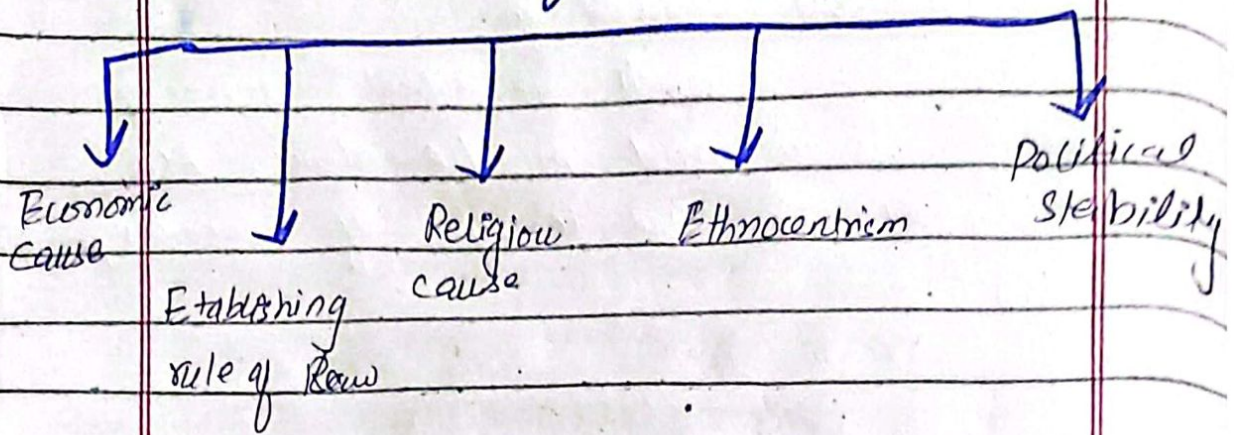 Economic
cause
Etablishing
rule of Law
Religious
cause
Ethnocentrism
Political
Stability